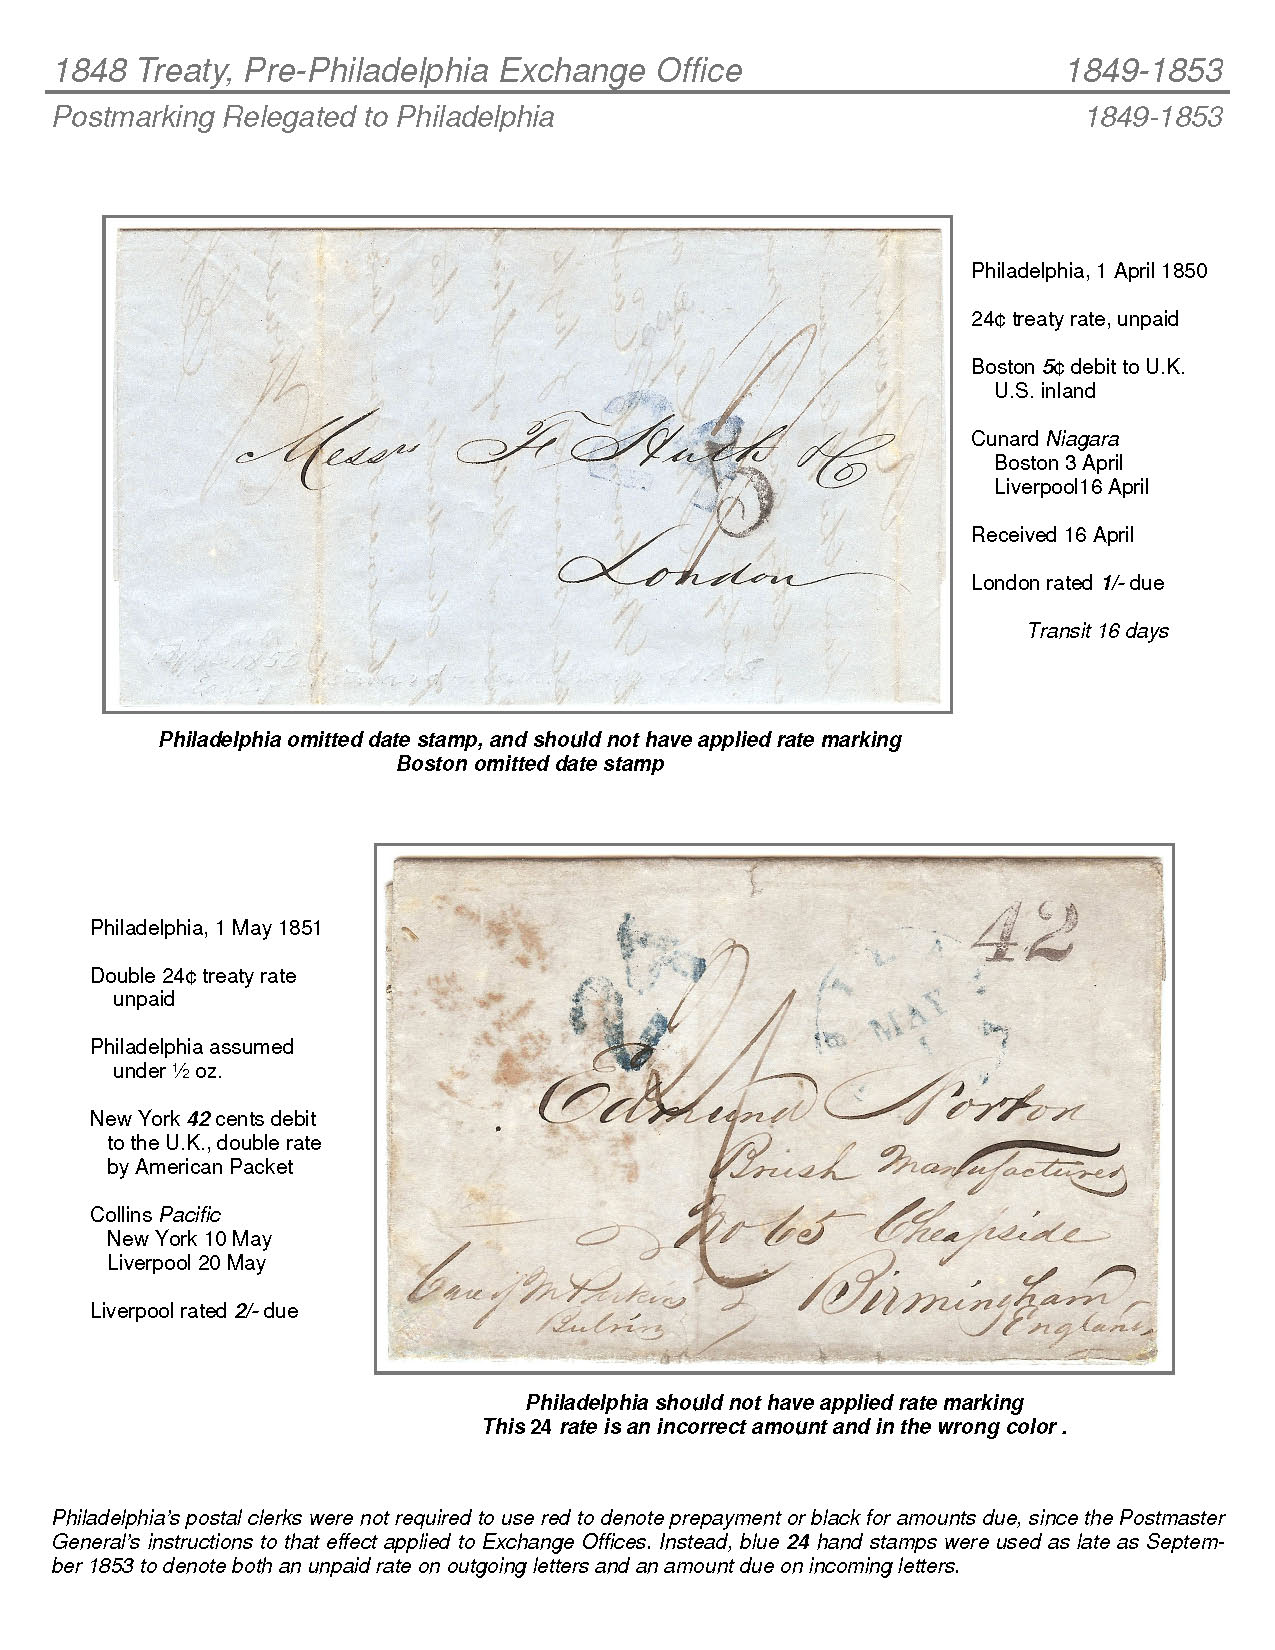 1848 Treaty, Pre-Philadelphia Exchange Office 1849-1853
Postmarking Relegated to Philadelphia 1849-1853
Messrs F Huth & Co
5
London
Philadelphia, 1 April 1850
24¢ treaty rate, unpaid
Boston 5¢ debit to U.K.
U.S. inland
Cunard Niagara
Boston 3 April
Liverpool16 April
Received 16 April
London rated 1/- due
Transit 16 days
Philadelphia omitted date stamp, and should not have applied rate marking
Boston omitted date stamp
Philadelphia, 1 May 1851
Double 24¢ treaty rate
unpaid
Philadelphia assumed
under ½ oz.
New York 42 cents debit
to the U.K., double rate
by American Packet
Collins Pacific
New York 10 May
Liverpool 20 May
Liverpool rated 2/- due
42
24
MAY
Edmund Norton
Brush Manufacturer
No 65 Cheapside
Birmingham
England
Care of Mr Perkins
Philadelphia should not have applied rate marking
This 24 rate is an incorrect amount and in the wrong color .
Philadelphia's postal clerks were not required to use red to denote prepayment or black for amounts due, since the Postmaster
General's instructions to that effect applied to Exchange Offices. Instead, blue 24 hand stamps were used as late as Septem-
ber 1853 to denote both an unpaid rate on outgoing letters and an amount due on incoming letters.